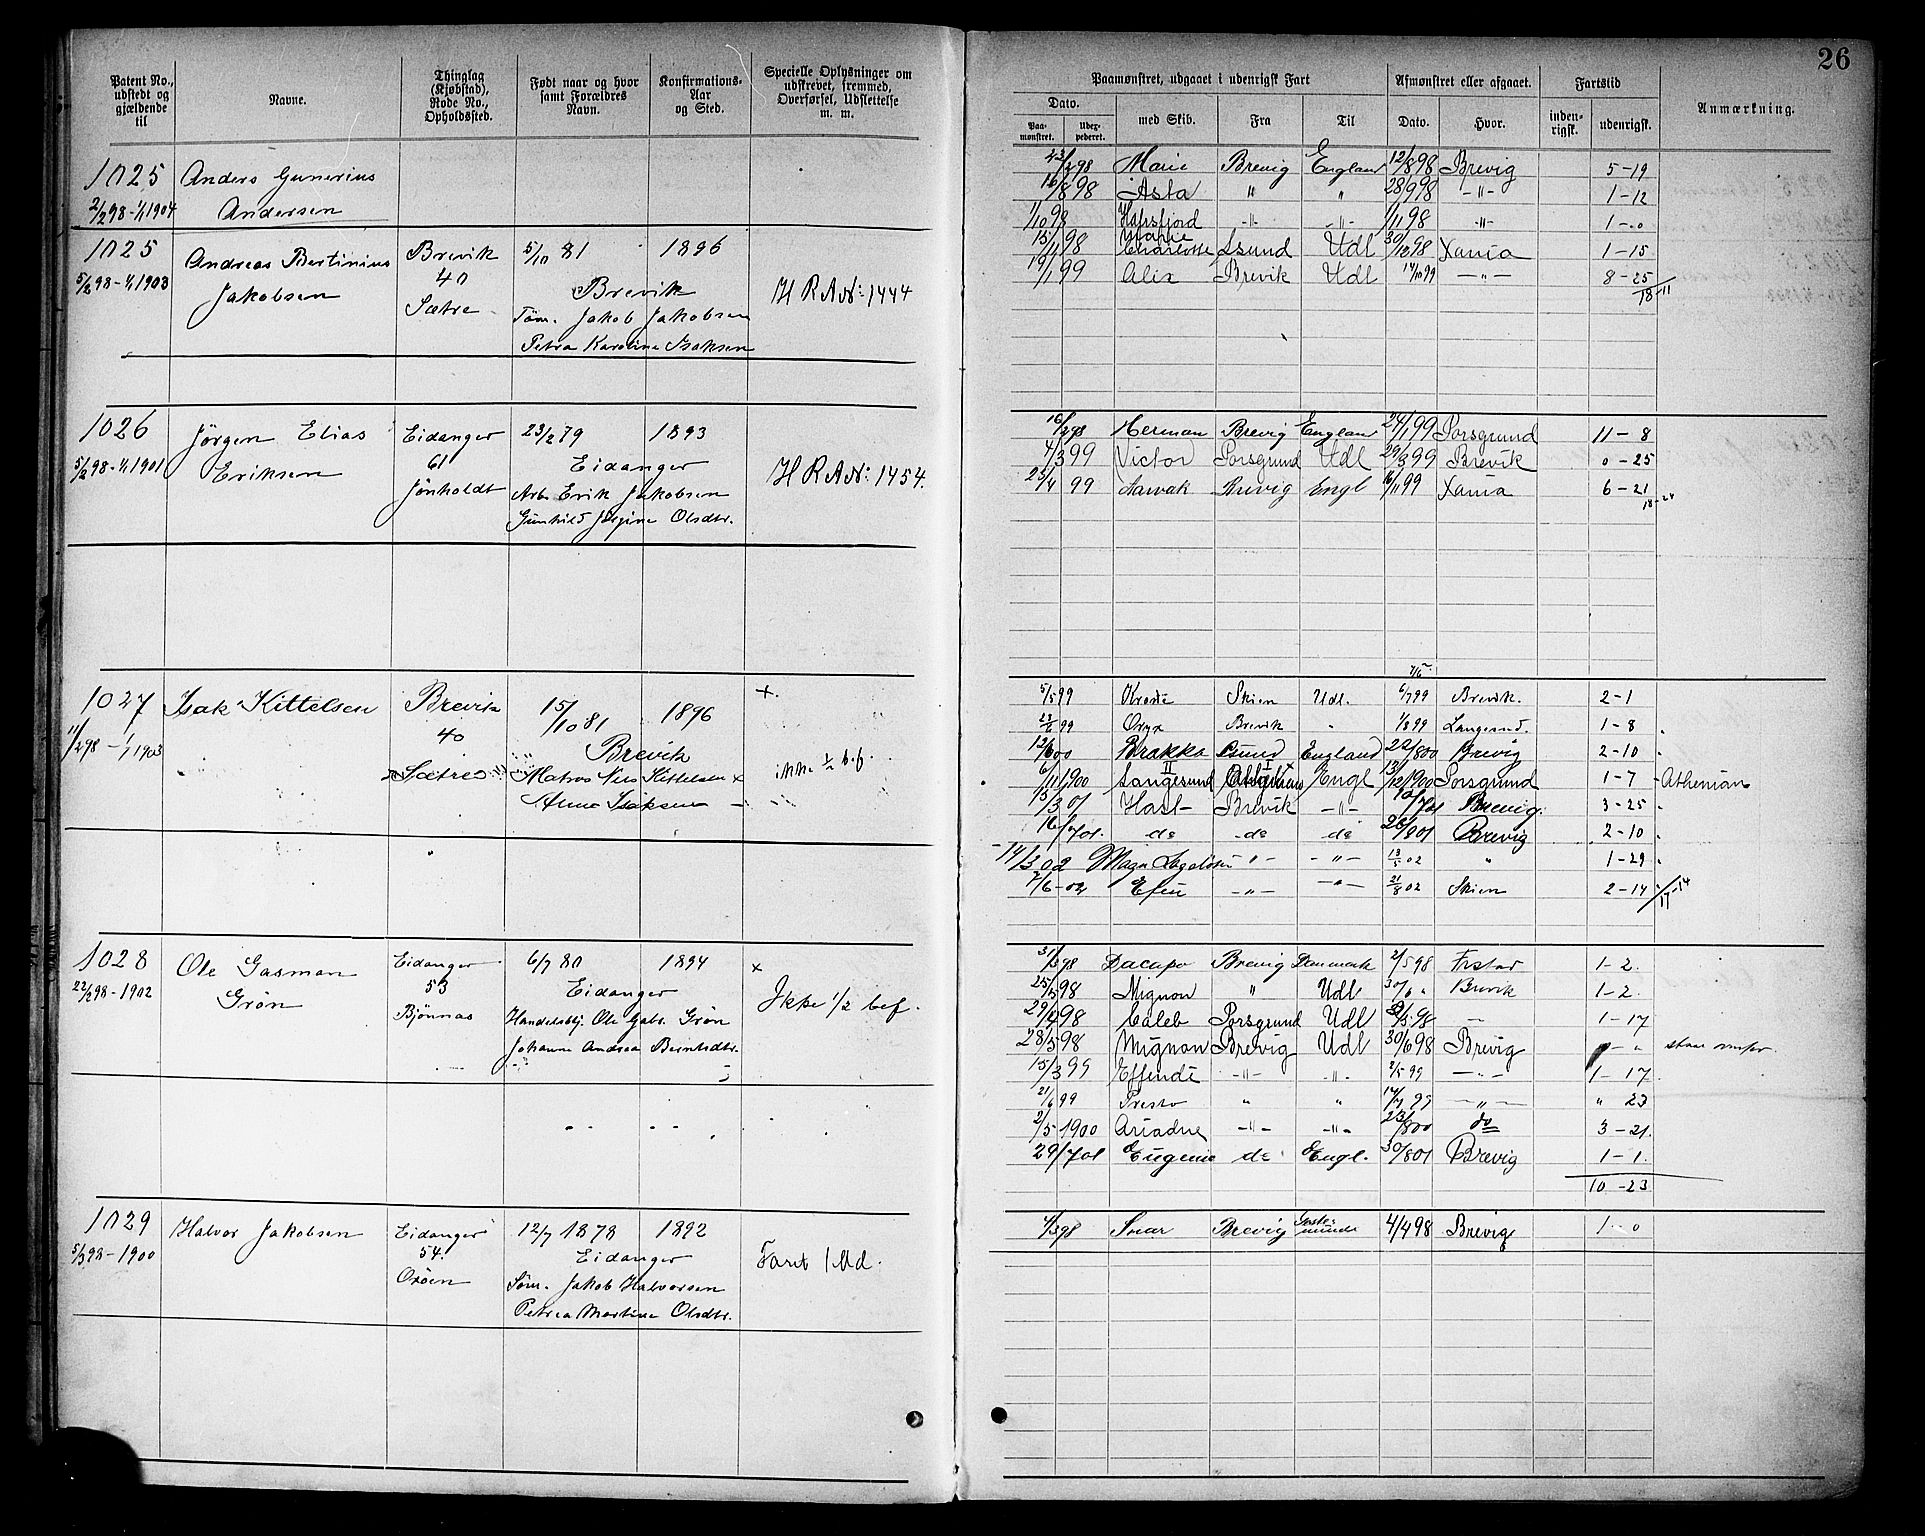 26
Patent No., udstedt og gjældende til
Navne.
Thinglag (Kjøbstad), Rode No., Opholdssted.
Født naar og hvor samt Forældres Navn.
Konfirmations-Aar og Sted.
Specielle Oplysninger om udskrevet, fremmed, Overførsel, Udslettelse m. m.
Paamønstret, udgaaet i udenrigsk Fart
Dato.
Paamønstret.
Udexpederet.
med Skib.
Fra
Til
Afmønstret eller afgaaet.
Dato.
Hvor.
Fartstid
indenrigsk.
udenrigsk.
Anmærkning.
1025 Anders Gunerius
2/2 98 - 1/1 1904 Andersen
1025 Andreas Bertinius Brevik 5/10 81 1896
5/2 98 - 1/1 1903 Jakobsen 40 Brevik H R A №: 1444
Sætre Tøm. Jakob Jakobsen
Petra Karoline Isaksen
1026 Jørgen Elias Eidanger 23/2 79 1893
5/2 98 - 1/1 1901 Eriksen 61 Eidanger H R A №: 1454.
Jønholdt Arb. Erik Jakobsen
Gunhild Jørgine Olsdtr.
1027 Isak Kittelsen Brevik 15/10 81 1896 +
11/2 98 - 1/1 1903 40 Brevik
Sætre Matros Nils Kittelsen ikke 1/2 b.f.
Anne Isaksen
1028 Ole Gasman Eidanger 6/7 80 1894 x
22/2 98 - 1902 Grøn 53 Eidanger Ikke 1/2 bef.
Bjønnæs Handelsbtj. Ole Gabr. Grøn
Johanne Andrea Berntsdtr.
1029 Halvor Jakobsen Eidanger 12/7 1878 1892
5/3 98 - 1900 54. Eidanger Faret 1 Md.
Orøen Søm. Jakob Halvorsen
Petrea Martine Olsdtr.
Marie Brevig England 12/8 98 Brevig 5-19
16/8 98 Asta " " 28/9 98 -"- 1-12
1/10 98 Hafrsfjord -"- -"- 1/11 98 -"- 1-0
15/11 98 Marie Charlotte Lsund Udl 30/12 98 Xania 1-15
19/1 99 Alix Brevik Udl 14/10 99 -"- 8-25
18-11
16/2 98 Herman Brevig England 24/1 99 Porsgrund 11-8
4/3 99 Victor Porsgrund Udl 29/3 99 Brevik 0-25
25/4 99 Narvak Brevig Engl 16/11 99 Xania 6-21
18-24
5/5 99 Skien Udl. 6/7 99 Brevik. 2-1
23/6 99 Oryx Brevik " 1/8 99 Langesund. 1-8
12/6 00 Brakka Lsund England 22/8 00 Brevig 2-10
6/11 1900 Langesund Engl 13/12 1900 Porsgrund 1-7 Athenian
15/3 01 Hast Brevik -"- 10/7 01 Brevig. 3-25
16/7 01. do do do 26/9 01 Brevig 2-10
14/3 02 -"- -"- 13/5 02 " 1-29
7/6 02 -"- -"- 21/8 02 Skien 2-14
17-14
31/3 98 Dacapo Brevig Danmark 2/5 98 Frstad 1-2.
25/5 98 Mignon " Udl 30/6 " Brevik 1-2.
29/4 98 Caleb Porsgrund Udl 1-17
28/5 98 Mignon Brevig Udl 30/6 98 Brevig
15/3 99 Effendi -"- -"- 2/5 99 -"- 1-17.
21/6 99 Presto " " 14/7 99 -"- " 23
2/5 1900 Ariadne -"- -"- 23/8 00 do 3-21.
29/7 01 Eugenie do Engl. 30/8 01 Brevig 1-1.
10-23
4/3 98 Snar Brevig Geste-münde 4/4 98 Brevig 1-0